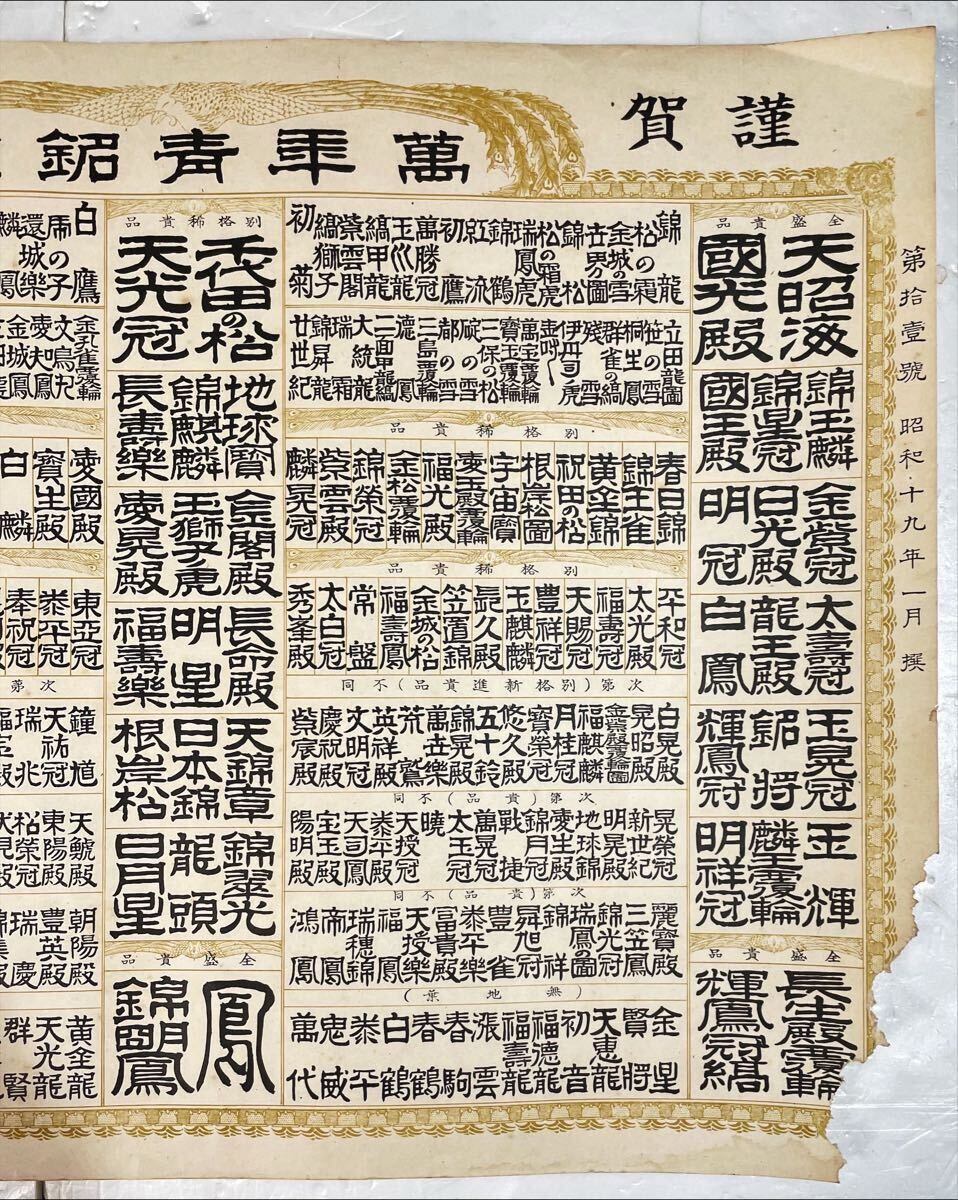 謹賀
萬年青銘
第拾壹號 昭和十九年一月 撰
全盛貴品
天昭海
國光殿
錦玉麟
錦星冠
國王殿
金紫冠
日光殿
明冠
太壽冠
龍王殿
白鳳
玉晃冠
銘将
輝鳳冠
玉輝
麟玉覆輪
明祥冠
全盛貴品
長生殿覆輪
輝鳳冠縞
錦龍
松の霜
金城の雪
世界の圖
錦松
松の霜虎
瑞鳳虎
錦鶴
紅流
初鷹
萬勝冠
玉川龍
縞甲龍
紫雲閣
縞獅子
初菊
立田龍圖
笹の雪
桐生鳳
群雀の縞
残雪
伊丹司虎
萬宝覆輪
寶玉覆輪
三保の松
砡の雪
都の雪
三島覆輪
徳鳳
二面甲龍縞
大統龍
瑞霜
錦昇龍
廿世紀
別格稀貴品
春日錦
錦王雀
黄金錦
祝田の松
根岸圖
宇宙寶
愛玉殿覆輪
福光殿
金松覆輪
錦榮冠
紫雲殿
麟晃冠
別格稀貴品
平和冠
太光殿
福壽冠
天賜冠
豊祥冠
玉麒麟
昆久殿
笠置錦
金城の松
福壽鳳
常盤
太白冠
秀峯殿
次第(別格新進貴品)不同
白晃殿
晃昭殿
金紫殿覆輪圖
福麒麟
月桂冠
寶榮冠
悠久殿
五十鈴
錦晃殿
萬世樂
荒鷲
英祥殿
文明冠
慶祝殿
紫宸殿
次第(貴品)不同
晃榮冠
新世紀
明晃殿
地球錦
愛生殿
錦月冠
戰捷
萬晃冠
太玉冠
曉
天授冠
泰平殿
天司鳳
宝玉殿
陽明殿
次第(貴品)不同
麗寶殿
三笠鳳
錦光冠
瑞鳳の圖
錦祥
昇旭冠
豊雀
泰平樂
冨貴殿
天授樂
福鳳
瑞穂錦
帝鳳
鴻鳳
(無地葉)
金星
賢将
天恵龍
初音
福徳龍
福壽龍
漲雲
春駒
春鶴
白鶴
泰平
忠威
萬代
別格稀貴品
千代田の松
天光冠
地球寶
錦麒麟
長壽樂
金閣殿
玉獅子虎
愛晃殿
長命殿
明星
福壽樂
天錦章
日本錦
根岸松
錦翠光
龍頭
日月星
全盛貴品
鳳
錦鳳
白鷹
馬の子
還城樂
金孔雀覆輪
文鳥丸
愛知鳳
金城鳳
愛國殿
寶生殿
白麟
東亞冠
泰平冠
奉祝冠
次第
鐘馗
天祐冠
瑞兆
天鯱殿
東陽殿
松榮冠
朝陽殿
豊英殿
瑞慶
黄金龍
天光龍
群賢